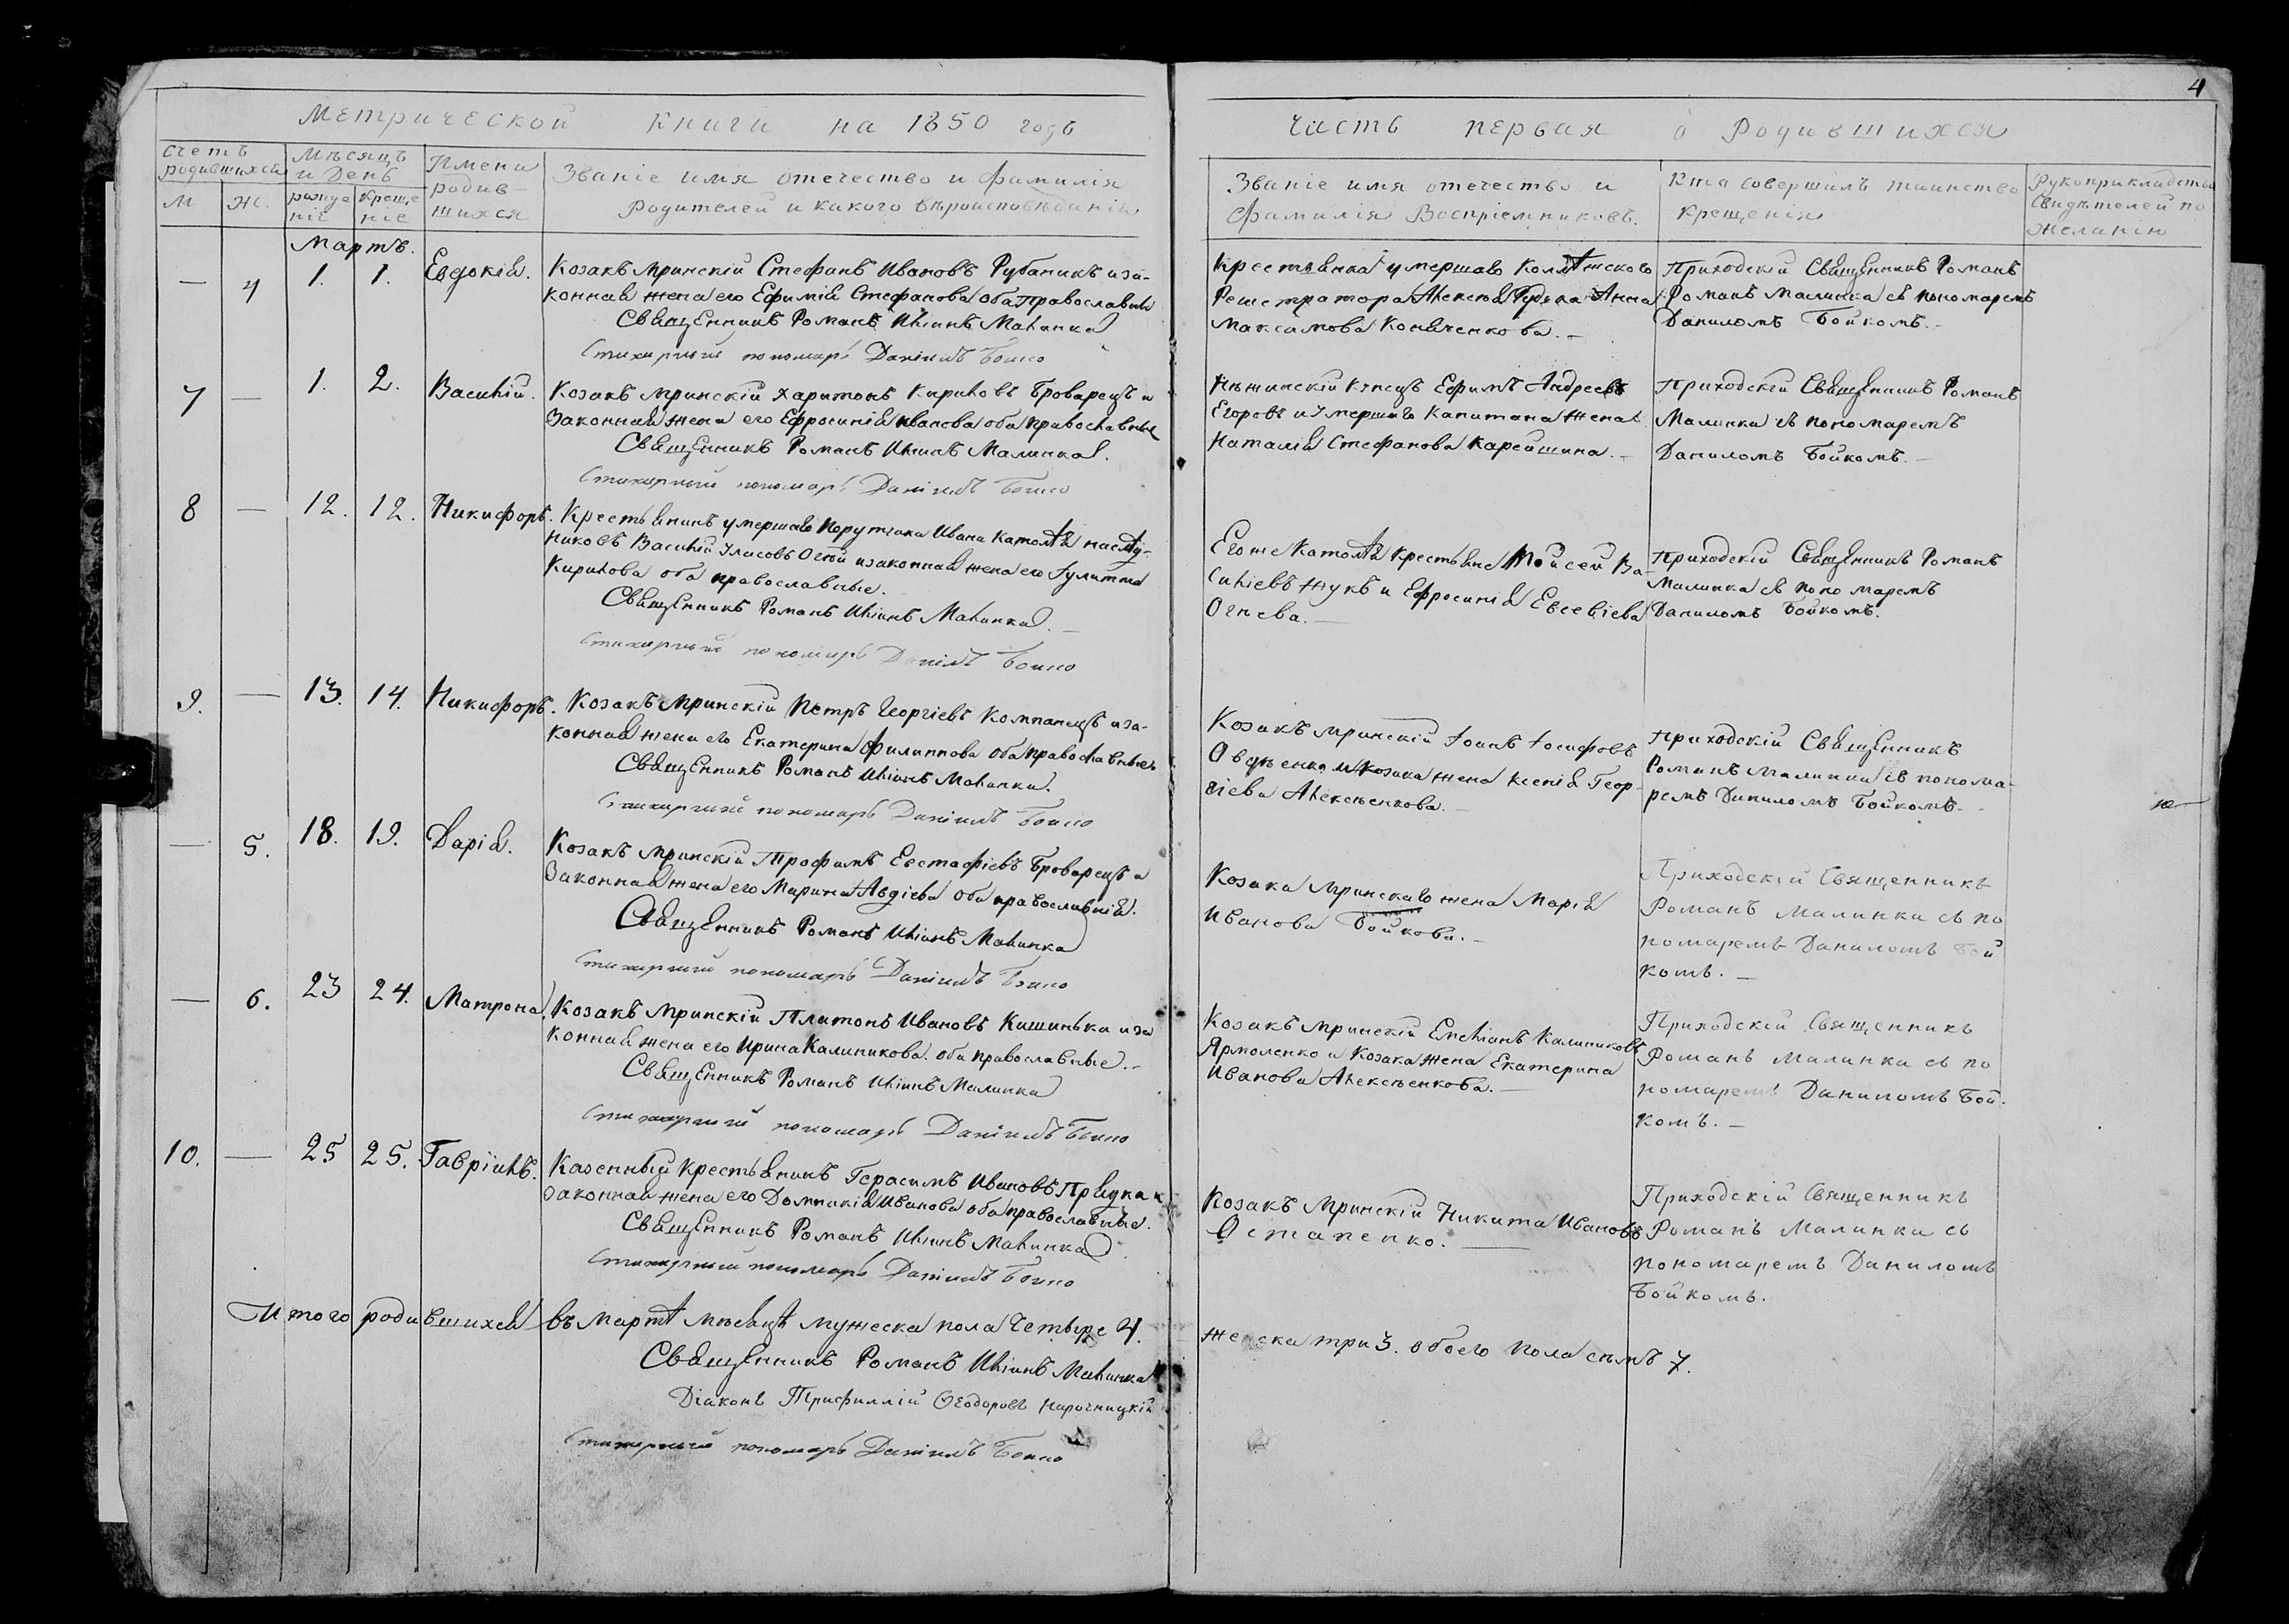 4
Метрической книги на 1850 годъ
Часть первая о Родившихся
Счетъ родившихся
М
Ж.
Мѣсяцъ и День
рожденіе
крещеніе
Имена родившихся
Званіе имя отечество и фамилія
родителей и какого вѣроисповѣданія
Званіе имя отечество и
фамилія Воспріемниковъ.
Кто совершилъ таинство
крещенія
Рукоприкладство
Свидѣтелей по
желанію
Мартъ.
— 4 1. 1. Евдокія.
Козакъ Мринскій Стефанъ Ивановъ Рубаникъ и за-
конная жена его Ефимія Стефанова оба православны
Священникъ Романъ Иліинъ Малинка
Стихирный пономарь Даніилъ Бойко
Крестьянка умершаго Коллѣжского
Регистратора Алексѣя Анна
Максимова
Приходскій Священникъ Романъ
Романъ Малинка съ пономаремъ
Даниломъ Бойкомъ.
7 — 1. 2. Василій.
Козакъ Мринскій Харитонъ Кириловъ Броварецъ и
Законная жена его Ефросинія Иванова оба православные
Священникъ Романъ Иліинъ Малинка.
Стихирный пономарь Даніилъ Бойко
Нѣжинскій Купецъ Ефимъ Андреевъ
Егоровъ и Умершаго Капитана жена
Наталія Стефанова Карейшина. —
Приходскій Священникъ Романъ
Малинка съ пономаремъ
Даниломъ Бойкомъ. —
8 — 12. 12. Никифоръ.
Крестьянинъ умершаго Порутчика Ивана Католѣя наслѣд-
никовъ Василій Уласовъ и законная жена его Іулитта
Кирилова оба православные.
Священникъ Романъ Иліинъ Малинка. —
Стихирный пономарь Даніилъ Бойко
Егоже Католѣя крестьяне Мойсей Ва-
силіевъ Жукъ и Ефросинія Евсевіева
Огнева. —
Приходскій Священникъ Романъ
Малинка съ пономаремъ
Даниломъ Бойкомъ.
9. — 13. 14. Никифоръ.
Козакъ Мринскій Петръ Георгіевъ Компанецъ и за-
конная жена его Екатерина Филиппова оба православные
Священникъ Романъ Иліинъ Малинка.
Стихирный пономарь Даніилъ Бойко
Козакъ Мринскій Іоанъ Іосифовъ
Овдѣенко и Козака жена Ксенія Геор-
гіева Алексѣенкова. —
Приходскій Священникъ
Романъ Малинка съ понома-
ремъ Даниломъ Бойкомъ. —
— 5. 18. 19. Дарія.
Козакъ Мринскій Трофимъ Евстафіевъ Броварецъ и
Законная жена его Марина Авдіева оба православнія.
Священникъ Романъ Иліинъ Малинка
Стихирный пономарь Даніилъ Бойко
Козака Мринскаго жена Марія
Иванова Бойкова. —
Приходскій Священникъ
Романъ Малинка съ по
номаремъ Даниломъ Бой
комъ. —
— 6. 23 24. Матрона.
Козакъ Мринскій Платонъ Ивановъ Кишинька и за
конная жена его Ирина Калиникова. оба православные. —
Священникъ Романъ Иліинъ Малинка
Стихирный пономарь Даніилъ Бойко
Козакъ Мринскій Емеліанъ Калиниковъ
Ярмоленко и Козака жена Екатерина
Иванова Алексѣенкова. —
Приходскій Священникъ
Романъ Малинка съ по
номаремъ Даниломъ Бой-
комъ. —
10. — 25 25. Гавріилъ.
Казенный Крестьянинъ Герасимъ Ивановъ и
законная жена его Домникія Иванова оба православные.
Священникъ Романъ Иліинъ Малинка
Стихирный пономарь Даніилъ Бойко
Козакъ Мринскій Никита Ивановъ
Остапенко. —
Приходскій Священникъ
Романъ Малинка съ
пономаремъ Даниломъ
Бойкомъ.
Итого родившихся въ Мартѣ Мѣсяцѣ мужеска пола Четыре 4. женска три 3. обоего пола сѣмъ 7.
Священникъ Романъ Иліинъ Малинка
Діаконъ Трифиллій Ѳеодоровъ
Стихирный пономарь Даніилъ Бойко